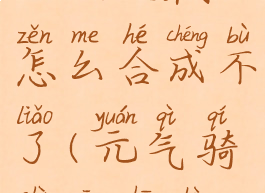 zěn me hé chéng bù
怎么合成不
liǎo yuán qì qí
了(元气骑